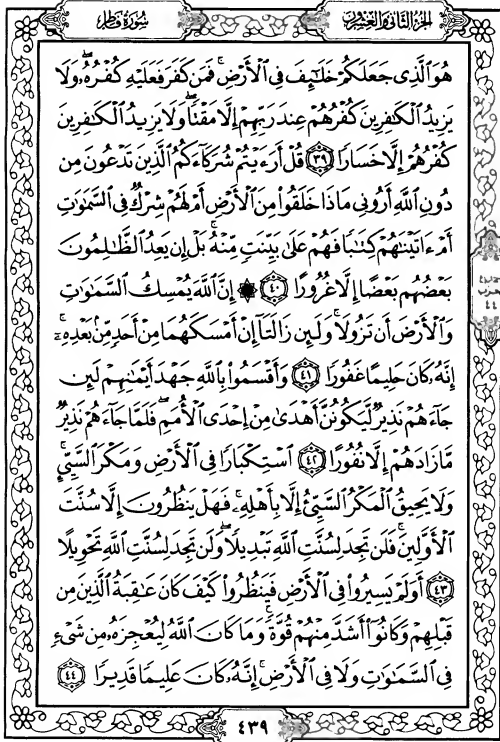 الجزء الثاني والعشرون
سورة فاطر
هُوَ الَّذِى جَعَلَكُمْ خَلَٰٓئِفَ فِى الْأَرْضِ ۚ فَمَن كَفَرَ فَعَلَيْهِ كُفْرُهُۥ ۖ وَلَا
يَزِيدُ الْكَٰفِرِينَ كُفْرُهُمْ عِندَ رَبِّهِمْ إِلَّا مَقْتًا ۖ وَلَا يَزِيدُ الْكَٰفِرِينَ
كُفْرُهُمْ إِلَّا خَسَارًا ٣٩ قُلْ أَرَءَيْتُمْ شُرَكَآءَكُمُ الَّذِينَ تَدْعُونَ مِن
دُونِ اللَّهِ أَرُونِى مَاذَا خَلَقُوا۟ مِنَ الْأَرْضِ أَمْ لَهُمْ شِرْكٌ فِى السَّمَٰوَٰتِ
أَمْ ءَاتَيْنَٰهُمْ كِتَٰبًا فَهُمْ عَلَىٰ بَيِّنَتٍ مِّنْهُ ۚ بَلْ إِن يَعِدُ الظَّٰلِمُونَ
بَعْضُهُم بَعْضًا إِلَّا غُرُورًا ٤٠ ۞ إِنَّ اللَّهَ يُمْسِكُ السَّمَٰوَٰتِ
وَالْأَرْضَ أَن تَزُولَا ۚ وَلَئِن زَالَتَآ إِنْ أَمْسَكَهُمَا مِنْ أَحَدٍ مِّنۢ بَعْدِهِۦٓ ۚ
إِنَّهُۥ كَانَ حَلِيمًا غَفُورًا ٤١ وَأَقْسَمُوا۟ بِاللَّهِ جَهْدَ أَيْمَٰنِهِمْ لَئِن
جَآءَهُمْ نَذِيرٌ لَّيَكُونُنَّ أَهْدَىٰ مِنْ إِحْدَى الْأُمَمِ ۖ فَلَمَّا جَآءَهُمْ نَذِيرٌ
مَّا زَادَهُمْ إِلَّا نُفُورًا ٤٢ اسْتِكْبَارًا فِى الْأَرْضِ وَمَكْرَ السَّيِّئِ ۚ
وَلَا يَحِيقُ الْمَكْرُ السَّيِّئُ إِلَّا بِأَهْلِهِۦ ۚ فَهَلْ يَنظُرُونَ إِلَّا سُنَّتَ
الْأَوَّلِينَ ۚ فَلَن تَجِدَ لِسُنَّتِ اللَّهِ تَبْدِيلًا ۖ وَلَن تَجِدَ لِسُنَّتِ اللَّهِ تَحْوِيلًا
٤٣ أَوَلَمْ يَسِيرُوا۟ فِى الْأَرْضِ فَيَنظُرُوا۟ كَيْفَ كَانَ عَٰقِبَةُ الَّذِينَ مِن
قَبْلِهِمْ وَكَانُوٓا۟ أَشَدَّ مِنْهُمْ قُوَّةً ۚ وَمَا كَانَ اللَّهُ لِيُعْجِزَهُۥ مِن شَىْءٍ
فِى السَّمَٰوَٰتِ وَلَا فِى الْأَرْضِ ۚ إِنَّهُۥ كَانَ عَلِيمًا قَدِيرًا ٤٤
٤٣٩